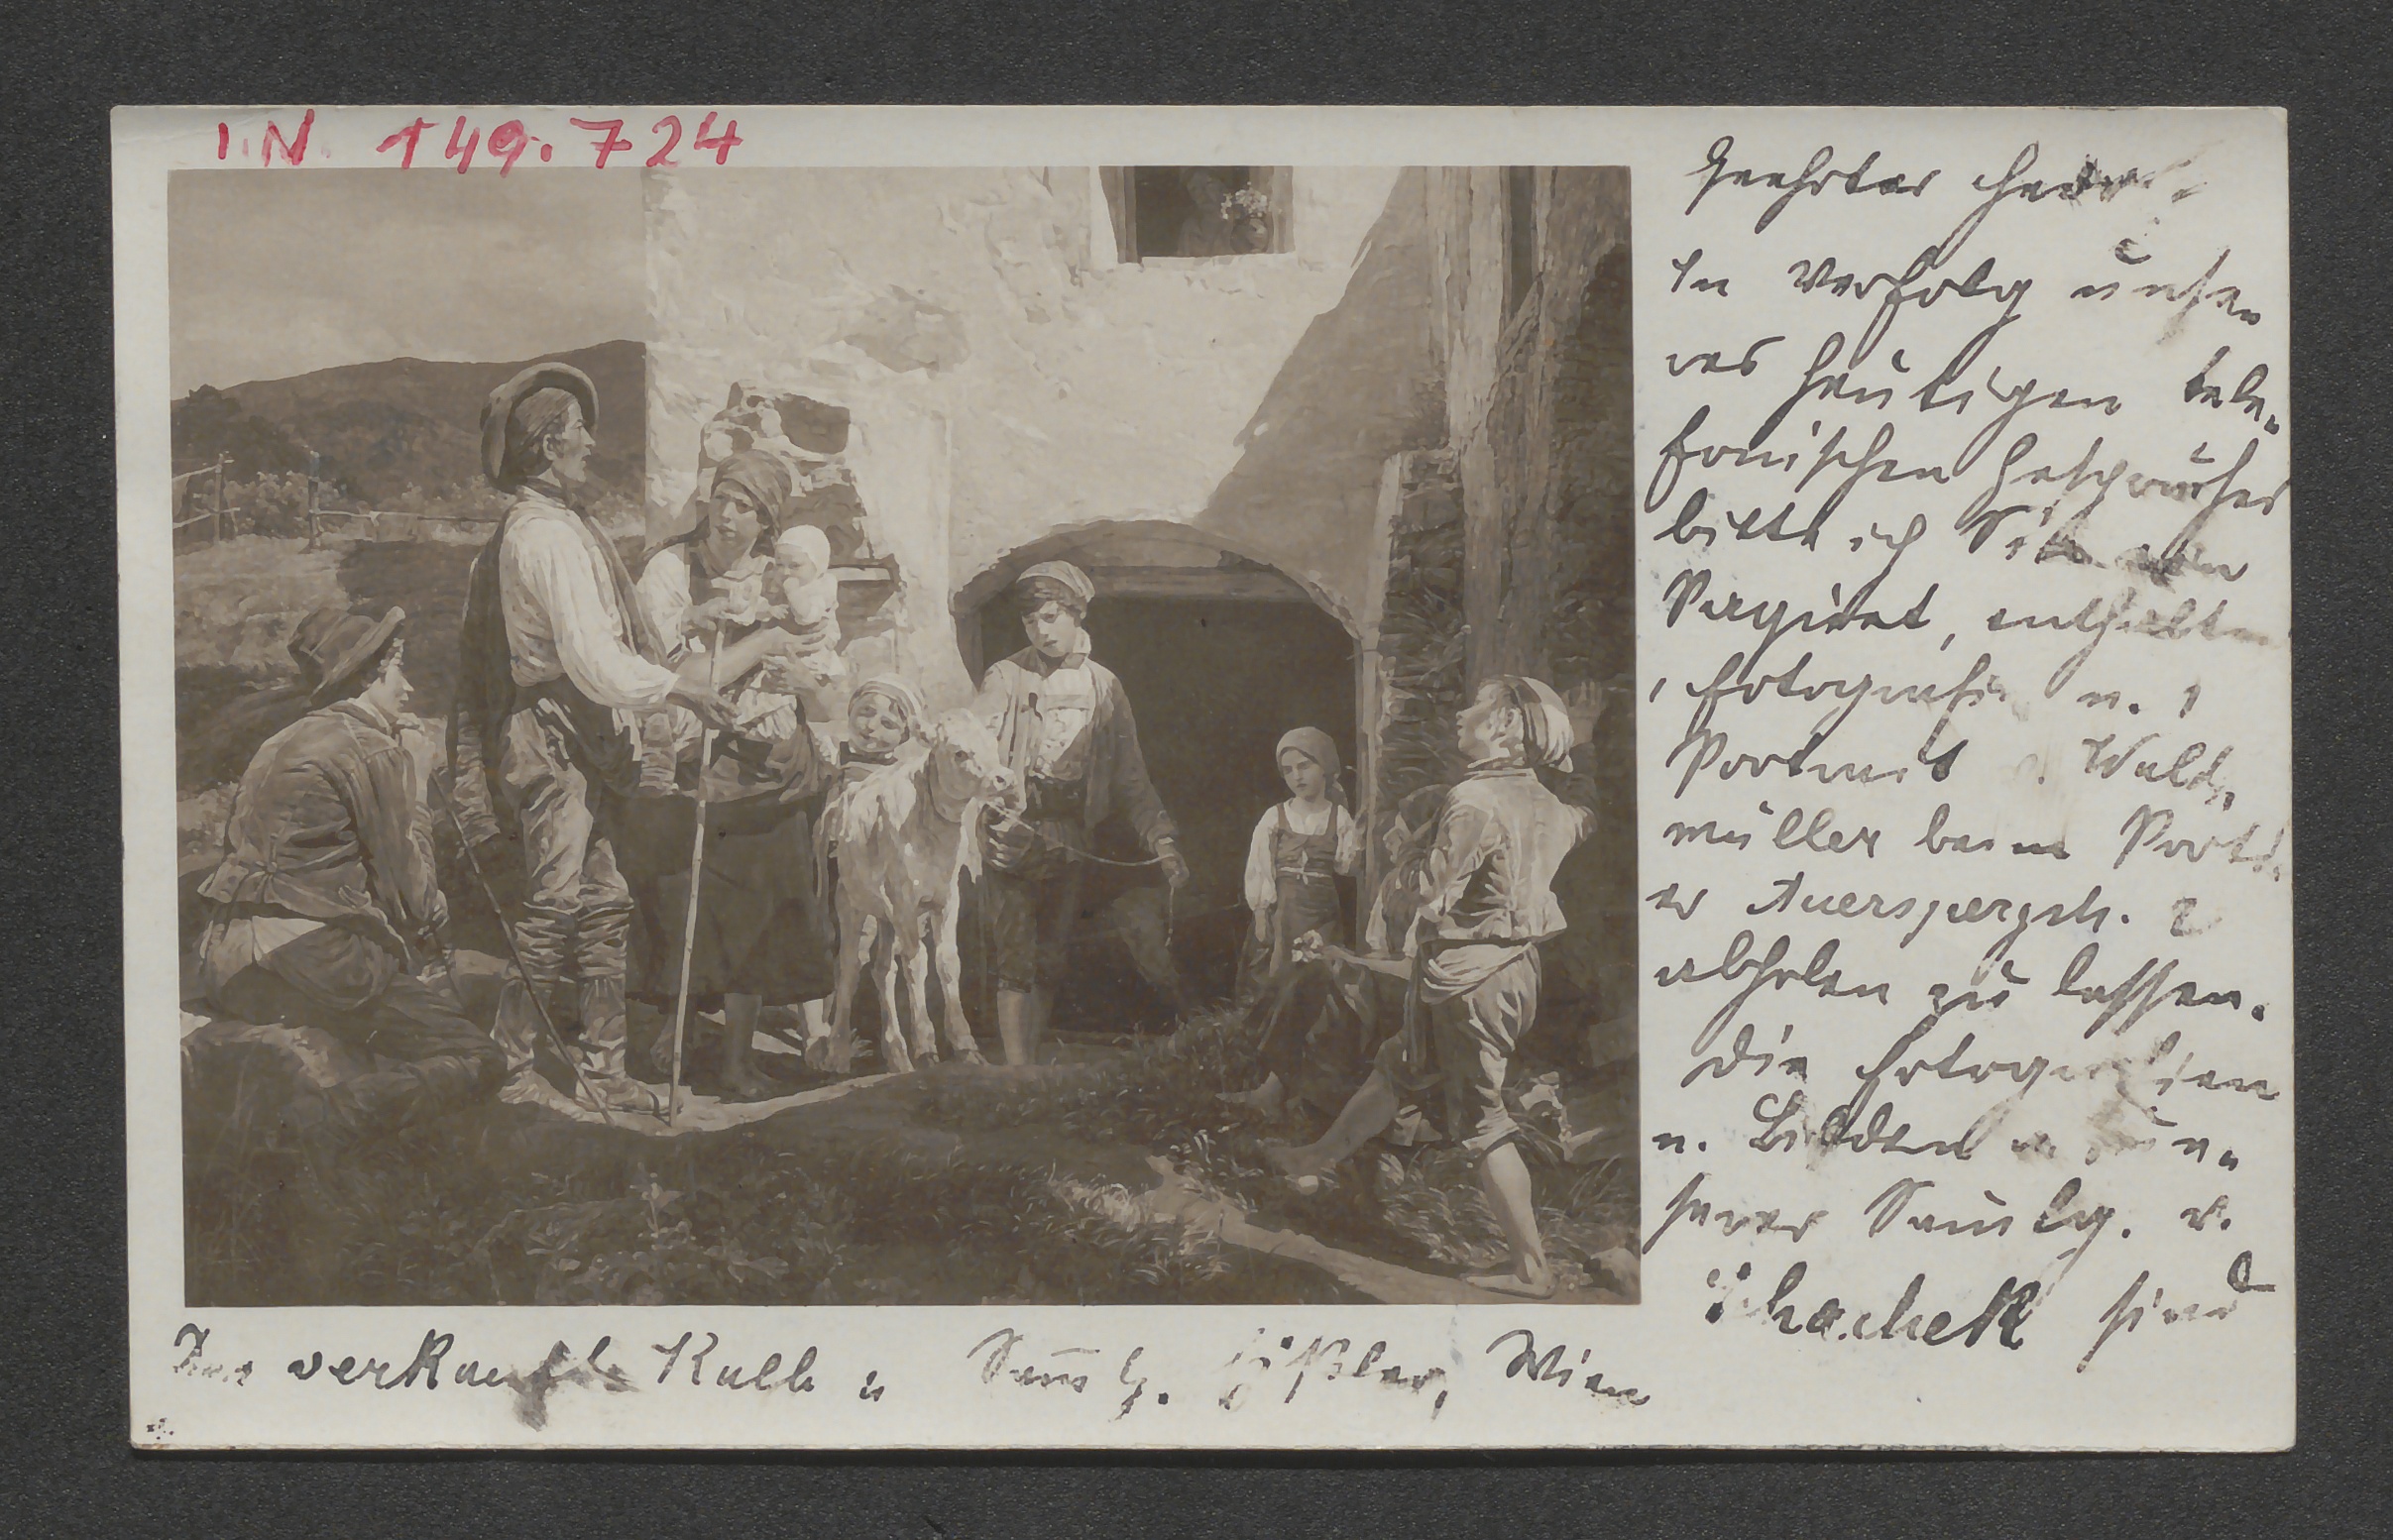 I.N. 149.724
Geehrter Herr
In Verfolg unse
res heutigen tele-
fonischen Gespräches
bitte ich Sie
Paquet, enthaltend
1 Fotografie u. 1
Portrait Wald-
müller beim Porti-
er Auerspergstr. 2
abholen zu lassen.
Die Fotografien
u. Bilder un-
serer Samlg. v.
Schachek sind
Das verkaufte Kalb Samlg. Wien